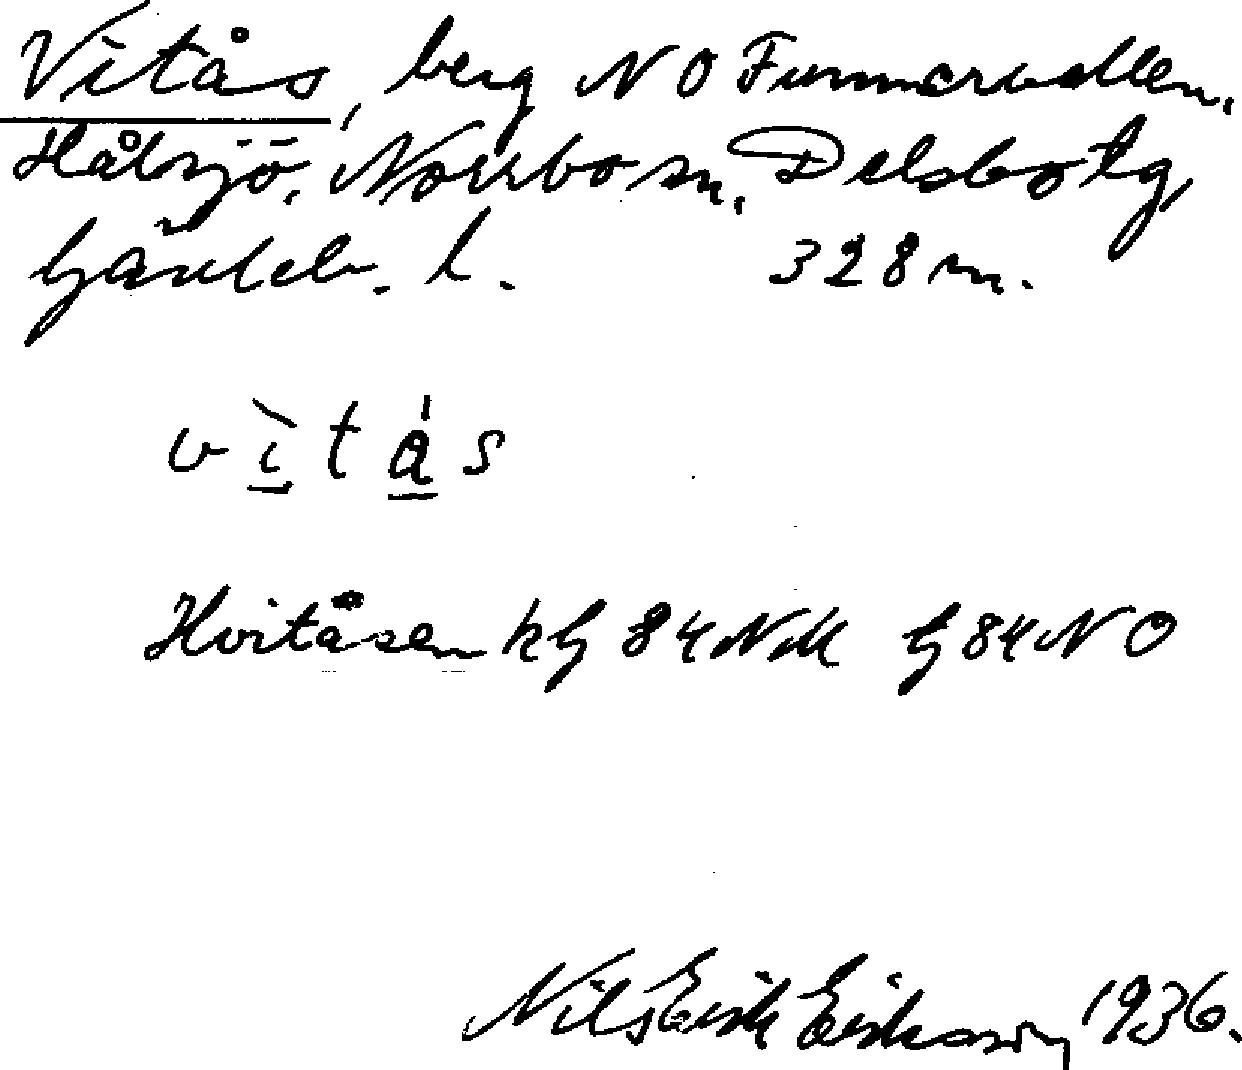 Vitås, berg NO Furmorvallen,
Hålsjö, Norrbo sn, Delsbo tg,
Gävleb. l. 328 m.
v ì t å s
Hvitåsen kG 84 NM G 84 NO
Nils Erik Eriksson, 1936.